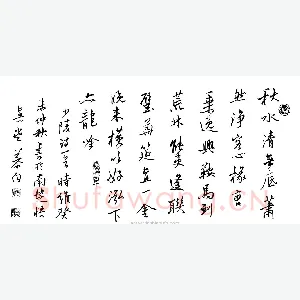 秋水清無底蕭
然淨客心掾曹
乘逸興鞍馬到
荒林能吏逢聯
璧華筵直一金
晚來橫吹好泓下
亦龍吟
少陵詩一首時維癸
未仲秋書於南楚